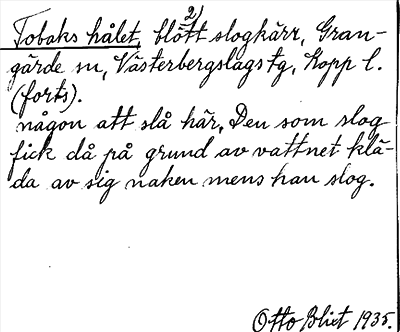 2)
Tobaks hålet, blött slogkärr, Gran-
gärde sn, Västerbergslags tg, Kopp l.
(forts).
någon att slå här. Den som slog
fick då på grund av vattnet klä-
da av sig naken mens han slog.
Otto Blixt 1935.